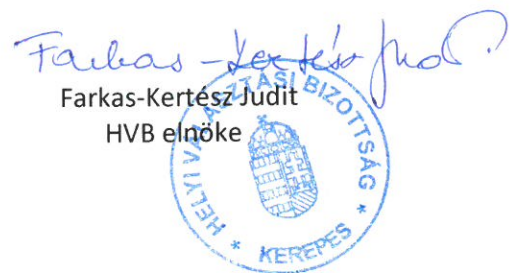 Farkas-Kertész Jud
Farkas-Kertész Judit
HVB elnöke
HELYI VÁLASZTÁSI BIZOTTSÁG * KEREPES *